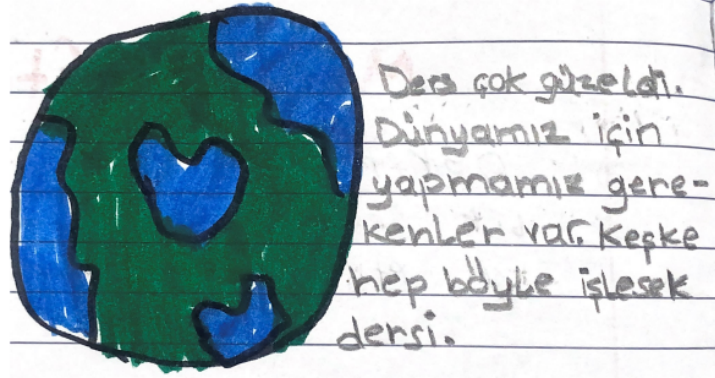 Ders çok güzeldi.
Dünyamız için
yapmamız gere-
kenler var. Keşke
hep böyle işlesek
dersi.